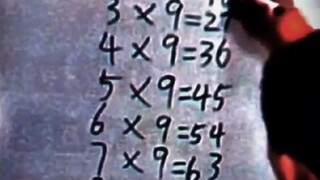 3 × 9=27
4 × 9=36
5 × 9=45
6 × 9=54
7 × 9=63